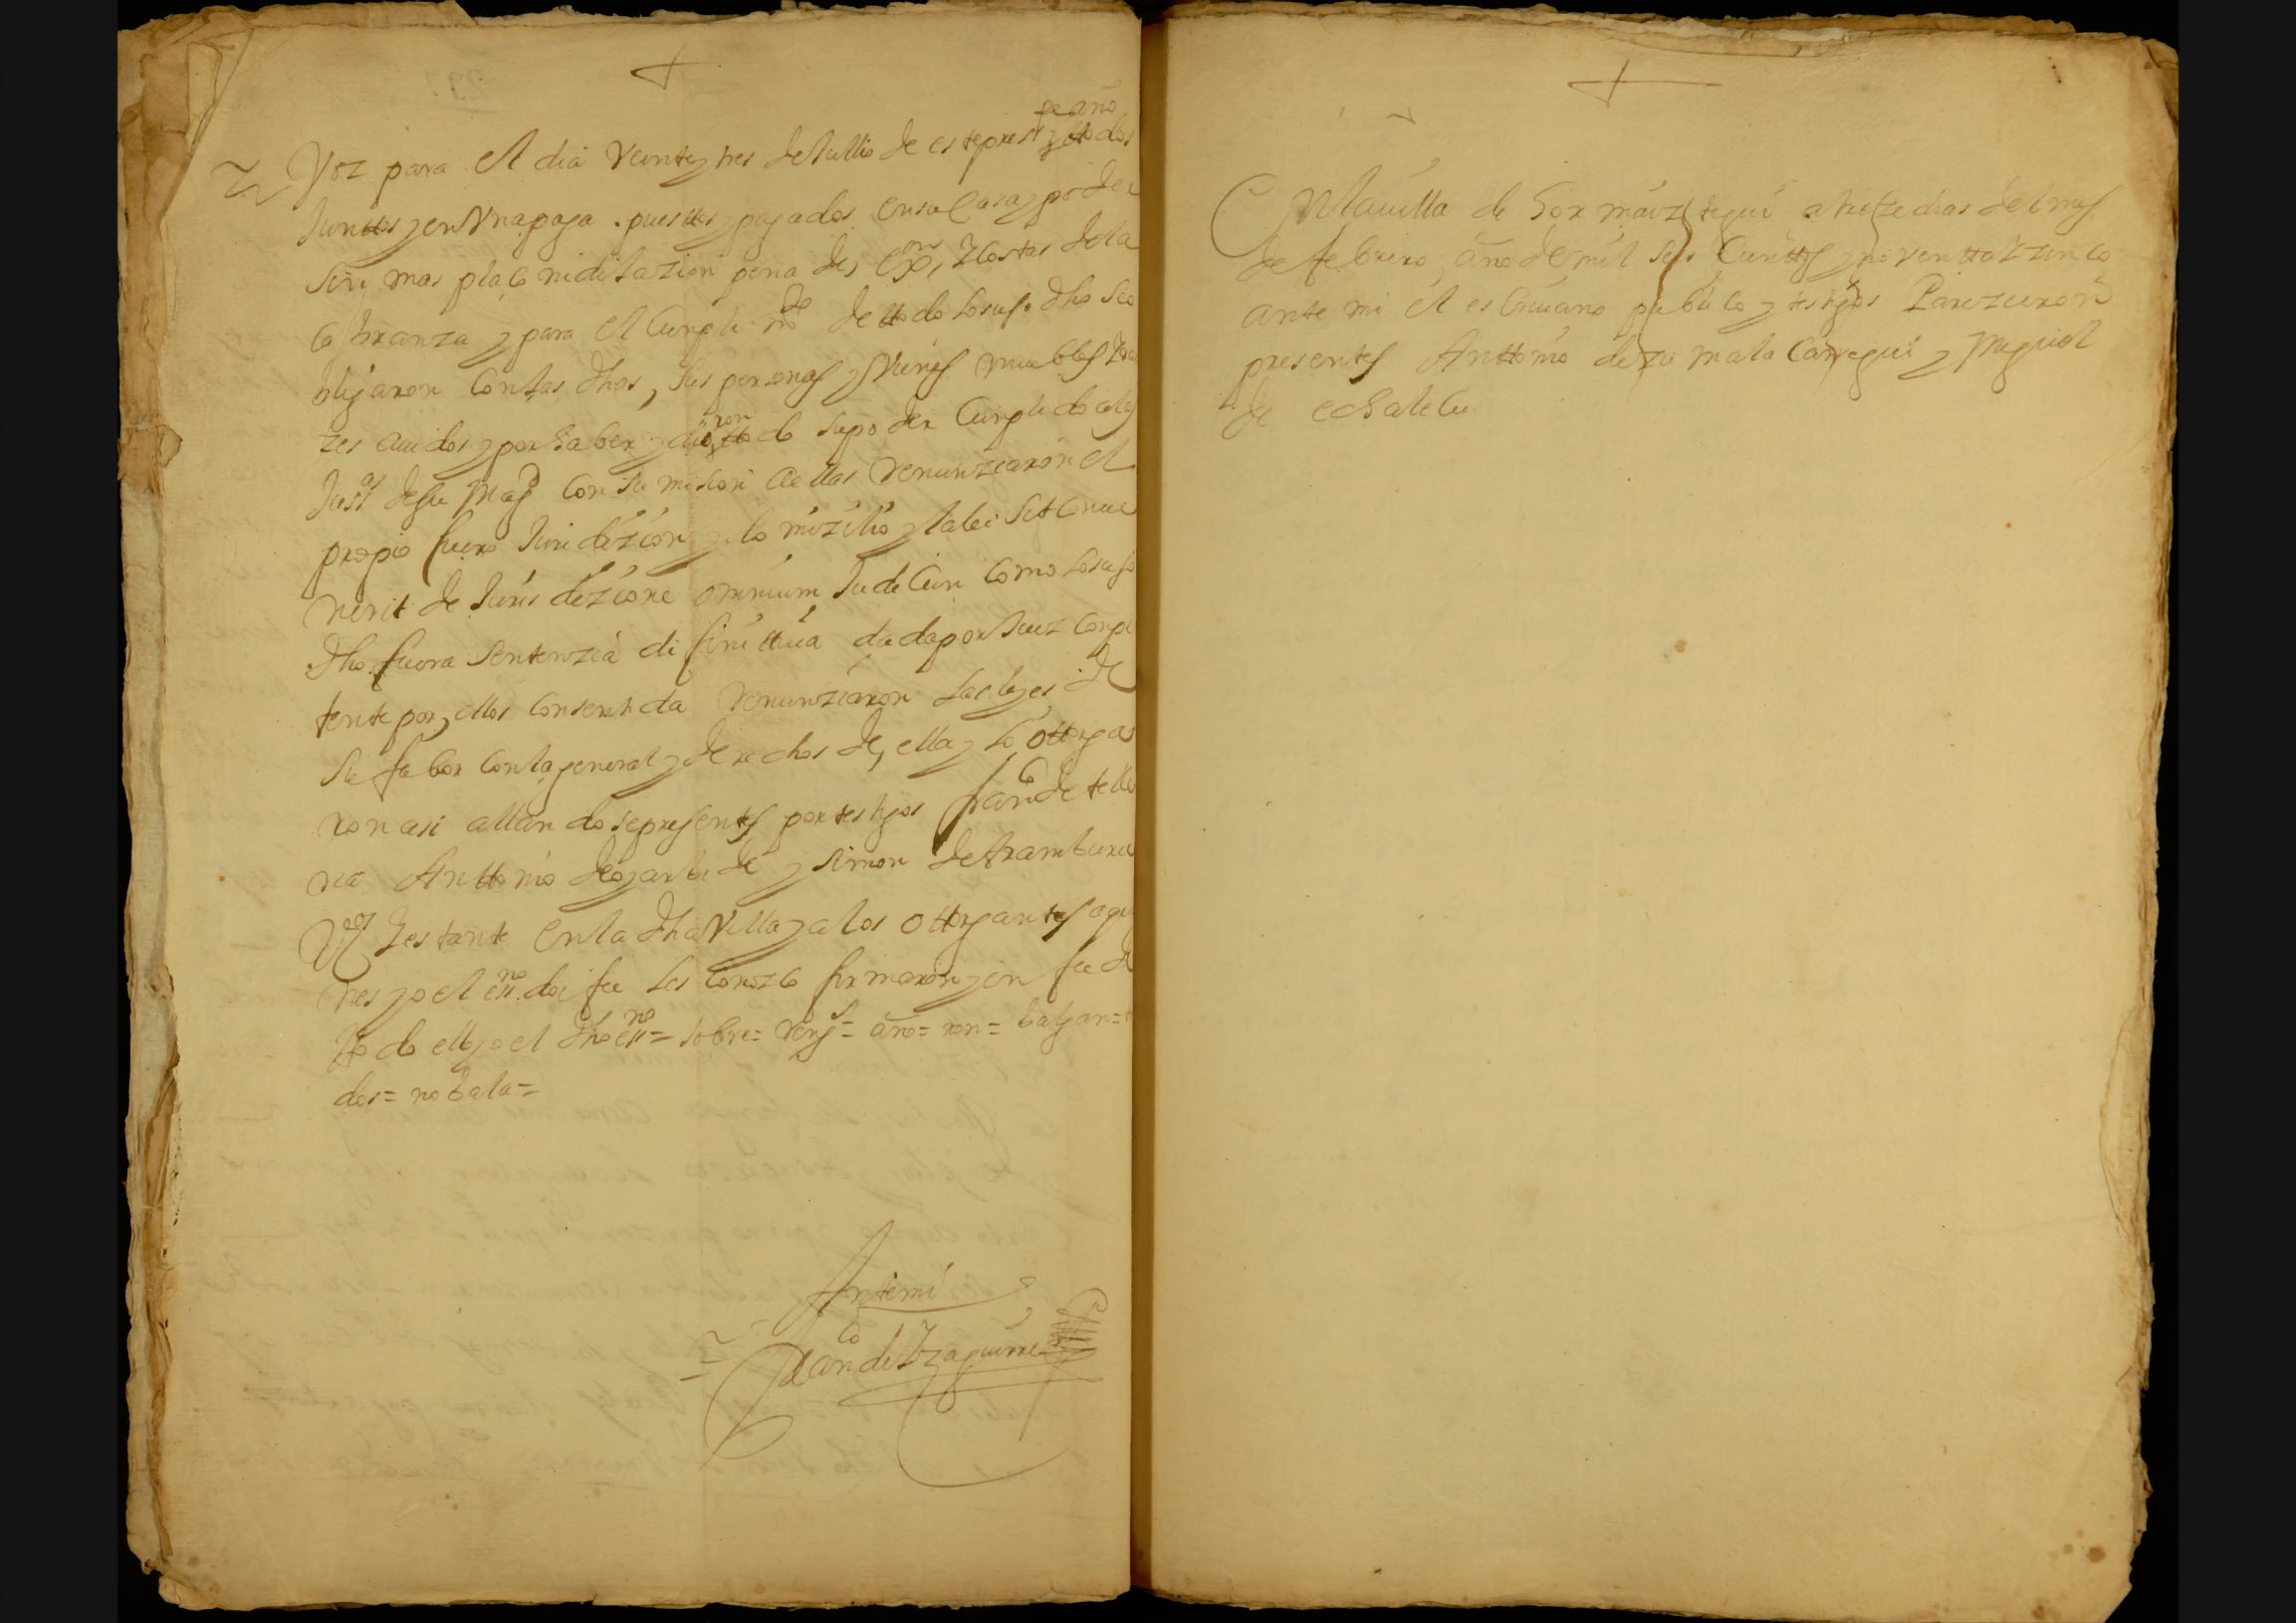 te año
Voz para el dia Veinte y tres de Jullio de este pres.te y ttodos
Junttos y en Vna paga. puesttos y pagados en su Casa y poder
sin mas plaço ni dilazion pena de ex.on y Costas de la
cobranza y para el Cunplim.to de ttodo lo suso dho se o
bligaron Con las dhas, sus personas y Vienes muebles y rai
zes auidos y por haber y dieron ttodo su poder Cunplido a las
Just.as de su Mag.d Con sumision a ellas renunziaron el
propio fuero Juridizion y domizilio y la lei sit Conue
nerit de Jurisdizione omnium Judicun como lo suso
dho fuera sentenzia difinittiua dada por Juez Conpe
tente por ellos Consentida renunziaron las leyes de
su fabor Con la general y derechos de, ella y lo ottorga
ron asi allandose presentes por testigos fran.co de telle
ria Anttonio de ogarbide y simon de Aramburu
V.os y estante en la dha Villa y a los ottorgantes a qui
enes yo el ess.no doi fee les Conozco firmaron y en fee de
tto do ello yo el dho ess.no = sobre = = año = ron = balgan =
dos = no bala =
Antemi
Fran.co de Yzaguirre
En la uilla de hormaiztegui a treze dias del mes
de febrero, año de mil seis Cienttos y nouentta y zinco
ante mi el escriuano publico y testigos Parezieron
presentes Anttonio de zumalacarregui y Miguel
de echalecu